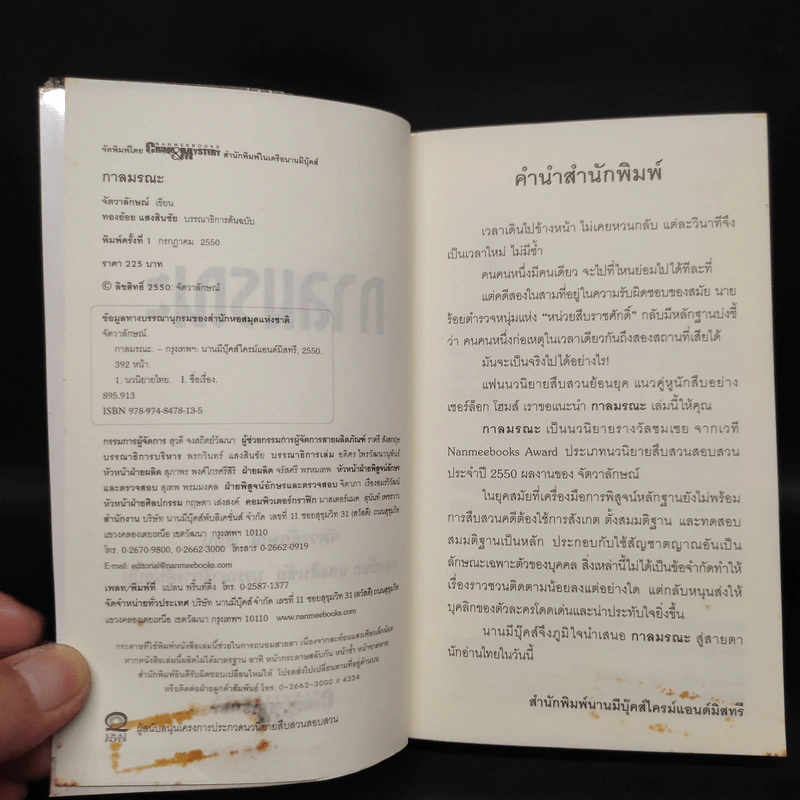 จัดพิมพ์โดย NANMEEBOOKS CRIME & MYSTERY สำนักพิมพ์ในเครือนานมีบุ๊คส์
กาลมรณะ
จัตวาลักษณ์ เขียน
ทองย้อย แสงสินชัย บรรณาธิการต้นฉบับ
พิมพ์ครั้งที่ 1 กรกฎาคม 2550
ราคา 225 บาท
© ลิขสิทธิ์ 2550: จัตวาลักษณ์
ข้อมูลทางบรรณานุกรมของสำนักหอสมุดแห่งชาติ
จัตวาลักษณ์.
กาลมรณะ. – กรุงเทพฯ: นานมีบุ๊คส์ไครม์แอนด์มิสทรี, 2550.
392 หน้า.
1. นวนิยายไทย. I. ชื่อเรื่อง.
895.913
ISBN 978-974-8478-13-5
กรรมการผู้จัดการ สุวดี จงสถิตย์วัฒนา ผู้ช่วยกรรมการผู้จัดการสายผลิตภัณฑ์ ราตรี
บรรณาธิการบริหาร พรกวินทร์ แสงสินชัย บรรณาธิการเล่ม อดิศร ไพรวัฒนานุพันธ์
หัวหน้าฝ่ายผลิต สุภาพร พงศ์ไกรศรีสิริ ฝ่ายผลิต จรัสศรี พรหมเทพ หัวหน้าฝ่ายพิสูจน์อักษร
และตรวจสอบ สุเทพ พรมมงคล ฝ่ายพิสูจน์อักษรและตรวจสอบ จิดาภา เรืองอมรวิวัฒน์
หัวหน้าฝ่ายศิลปกรรม กฤษดา เส่งสงค์ คอมพิวเตอร์กราฟิก มาสเตอร์แมค สุนันท์ เพชราา
สำนักงาน บริษัท นานมีบุ๊คส์พับลิเคชั่นส์ จำกัด เลขที่ 11 ซอยสุขุมวิท 31 (สวัสดี) ถนนสุขุมวิท
แขวงคลองเตยเหนือ เขตวัฒนา กรุงเทพฯ 10110
โทร. 0-2670-9800, 0-2662-3000 โทรสาร 0-2662-0919
E-mail: editorial@nanmeebooks.com
เพลท/พิมพ์ที่ แปลน พริ้นท์ติ้ง โทร. 0-2587-1377
จัดจำหน่ายทั่วประเทศ บริษัท นานมีบุ๊คส์ จำกัด เลขที่ 11 ซอยสุขุมวิท 31 (สวัสดี) ถนนสุขุมวิท
แขวงคลองเตยเหนือ เขตวัฒนา กรุงเทพฯ 10110 www.nanmeebooks.com
กระดาษที่ใช้พิมพ์หนังสือเล่มนี้ช่วยในการถนอมสายตา เนื่องจากสะท้อนแสงเพียงเล็กน้อย
หากหนังสือเล่มนี้ผลิตไม่ได้มาตรฐาน อาทิ หน้ากระดาษสลับกัน หน้าซ้ำ หน้าขาดหาย
สำนักพิมพ์ยินดีรับผิดชอบเปลี่ยนใหม่ให้ โปรดส่งไปเปลี่ยนตามที่อยู่ด้านบน
หรือติดต่อฝ่ายลูกค้าสัมพันธ์ โทร. 0-2662-3000 # 4324
ผู้สนับสนุนโครงการประกวดนวนิยายสืบสวนสอบสวน
คำนำสำนักพิมพ์
เวลาเดินไปข้างหน้า ไม่เคยหวนกลับ แต่ละวินาทีจึง
เป็นเวลาใหม่ ไม่มีซ้ำ
คนคนหนึ่งมีคนเดียว จะไปที่ไหนย่อมไปได้ทีละที่
แต่คดีสองในสามที่อยู่ในความรับผิดชอบของสมัย นาย
ร้อยตำรวจหนุ่มแห่ง “หน่วยสืบราชศักดิ์” กลับมีหลักฐานบ่งชี้
ว่า คนคนหนึ่งก่อเหตุในเวลาเดียวกันถึงสองสถานที่เสียได้
มันจะเป็นจริงไปได้อย่างไร!
แฟนนวนิยายสืบสวนย้อนยุค แนวคู่หูนักสืบอย่าง
เชอร์ล็อก โฮมส์ เราขอแนะนำ กาลมรณะ เล่มนี้ให้คุณ
กาลมรณะ เป็นนวนิยายรางวัลชมเชย จากเวที
Nanmeebooks Award ประเภทนวนิยายสืบสวนสอบสวน
ประจำปี 2550 ผลงานของ จัตวาลักษณ์
ในยุคสมัยที่เครื่องมือการพิสูจน์หลักฐานยังไม่พร้อม
การสืบสวนคดีต้องใช้การสังเกต ตั้งสมมติฐาน และทดสอบ
สมมติฐานเป็นหลัก ประกอบกับใช้สัญชาตญาณอันเป็น
ลักษณะเฉพาะตัวของบุคคล สิ่งเหล่านี้ไม่ได้เป็นข้อจำกัดทำให้
เรื่องราวชวนติดตามน้อยลงแต่อย่างใด แต่กลับหนุนส่งให้
บุคลิกของตัวละครโดดเด่นและน่าประทับใจยิ่งขึ้น
นานมีบุ๊คส์จึงภูมิใจนำเสนอ กาลมรณะ สู่สายตา
นักอ่านไทยในวันนี้
สำนักพิมพ์นานมีบุ๊คส์ไครม์แอนด์มิสทรี